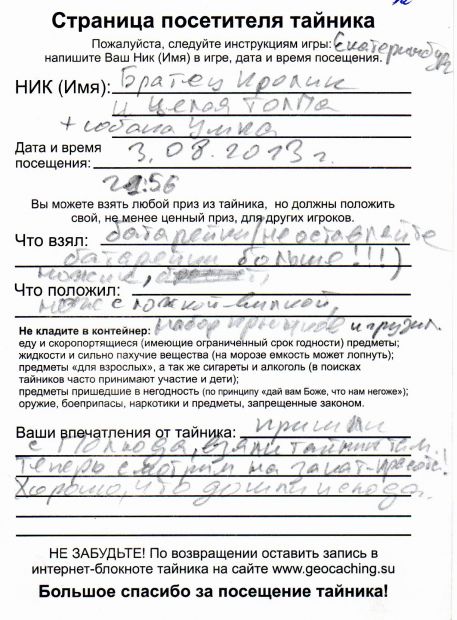 Страница посетителя тайника
Пожалуйста, следуйте инструкциям игры: Екатеринбург
напишите Ваш Ник (Имя) в игре, дата и время посещения.
НИК (Имя): Братец Кролик
и целая толпа
+ собака Умка
Дата и время
посещения: 3.08.2013 г.
21:56
Вы можете взять любой приз из тайника, но должны положить
свой, не менее ценный приз, для других игроков.
Что взял: батарейки (не оставляйте
батарейки больше!!!)
ножик,
Что положил:
нож с ложкой-вилкой,
Не кладите в контейнер: набор крючков и грузил
еду и скоропортящиеся (имеющие ограниченный срок годности) предметы;
жидкости и сильно пахучие вещества (на морозе емкость может лопнуть);
предметы «для взрослых», а так же сигареты и алкоголь (в поисках
тайников часто принимают участие и дети);
предметы пришедшие в негодность (по принципу «дай вам Боже, что нам негоже»);
оружие, боеприпасы, наркотики и предметы, запрещенные законом.
Ваши впечатления от тайника: пришли
с , взяли тайник там.
Теперь смотрим на закат-красота!
Хорошо, что дошли сюда.
НЕ ЗАБУДЬТЕ! По возвращении оставить запись в
интернет-блокноте тайника на сайте www.geocaching.su
Большое спасибо за посещение тайника!